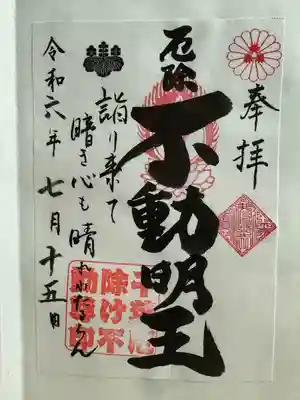 奉拝
厄除
不動明王
詣り来て
暗き心も晴れ
令和六年七月十五日
千葉厄
除け不
動尊印